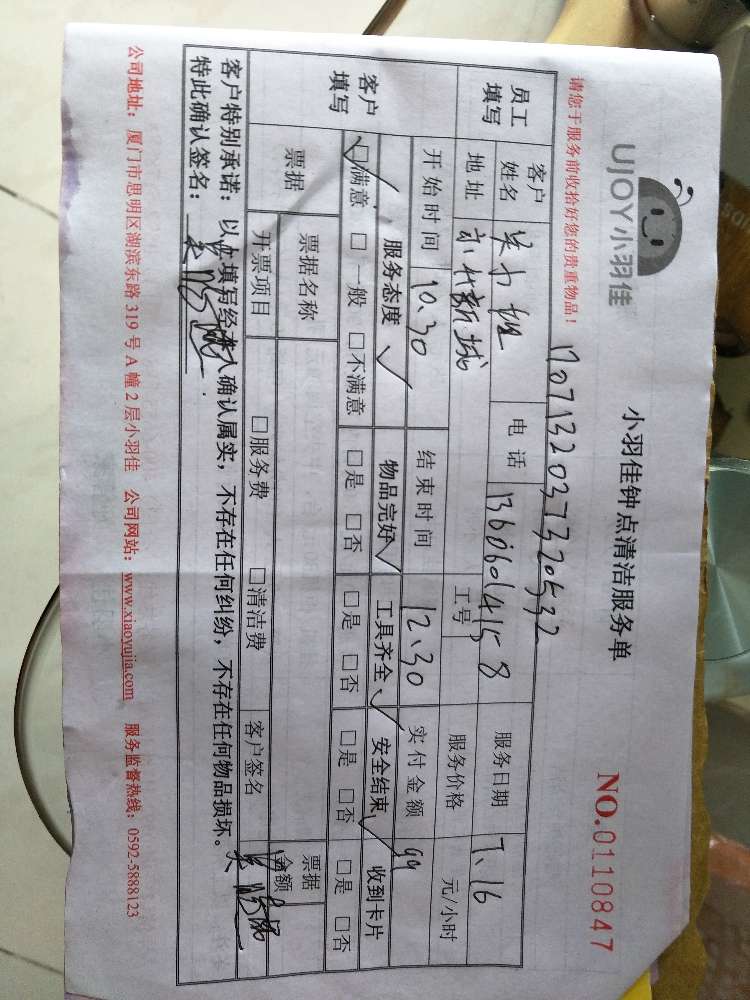 UJOY小羽佳
小羽佳钟点清洁服务单
NO.0110847
请您于服务前收拾好您的贵重物品！
170713203732053 2
员工填写 客户姓名 电话 13606014158 服务日期 7.16
地址 工号 服务价格 元/小时
开始时间 10.30 结束时间 12.30 实付金额 99
客户填写 服务态度 ✓ 物品完好 ✓ 工具齐全 ✓ 安全结束 ✓ 收到卡片
☑满意 □一般 □不满意 □是 □否 □是 □否 □是 □否 □是 □否
票据 票据名称 票据金额
开票项目 □服务费 □清洁费 客户签名
客户特别承诺：以上填写经本人确认属实，不存在任何纠纷，不存在任何物品损坏。
特此确认签名：
公司地址：厦门市思明区湖滨东路 319 号 A 幢 2 层小羽佳 公司网站：www.xiaoyujia.com 服务监督热线：0592-5888123